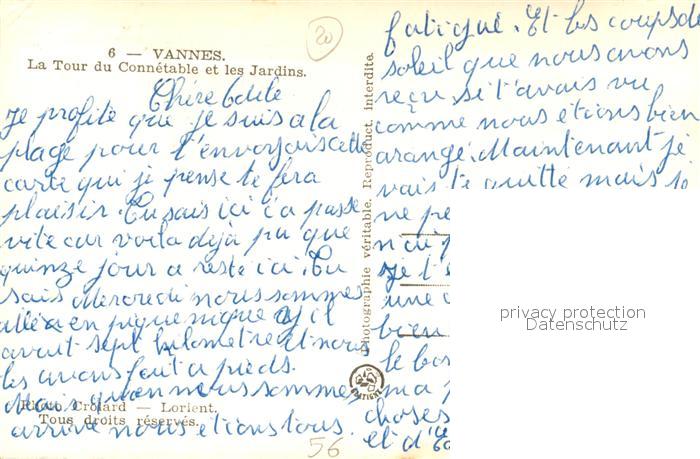 20
6 — VANNES.
La Tour du Connétable et les Jardins.
Je profite que je suis a la
plage pour t'envoyais cette
carte qui je pense te fera
plaisir. Tu sais ici ça passe
vite car voila deja pu que
quinze jour a resté ici. Tu
sais Mercredi nous sommes
allea en pique nique il
avait sept kilometre et nous
les avons fait a pieds.
Mais quan nous sommes
arrivé nous etions tous
Photo Crolard — Lorient.
Tous droits réservés.
56
Photographie véritable. Reproduct. interdite.
fatigué. Et les coups de
soleil que nous avons
reçu si t'avais vu
comme nous etions bien
arangé. Maintenant je
vais te quitté mais
ne
une
bien
le
ma
choses
et
privacy protection
Datenschutz